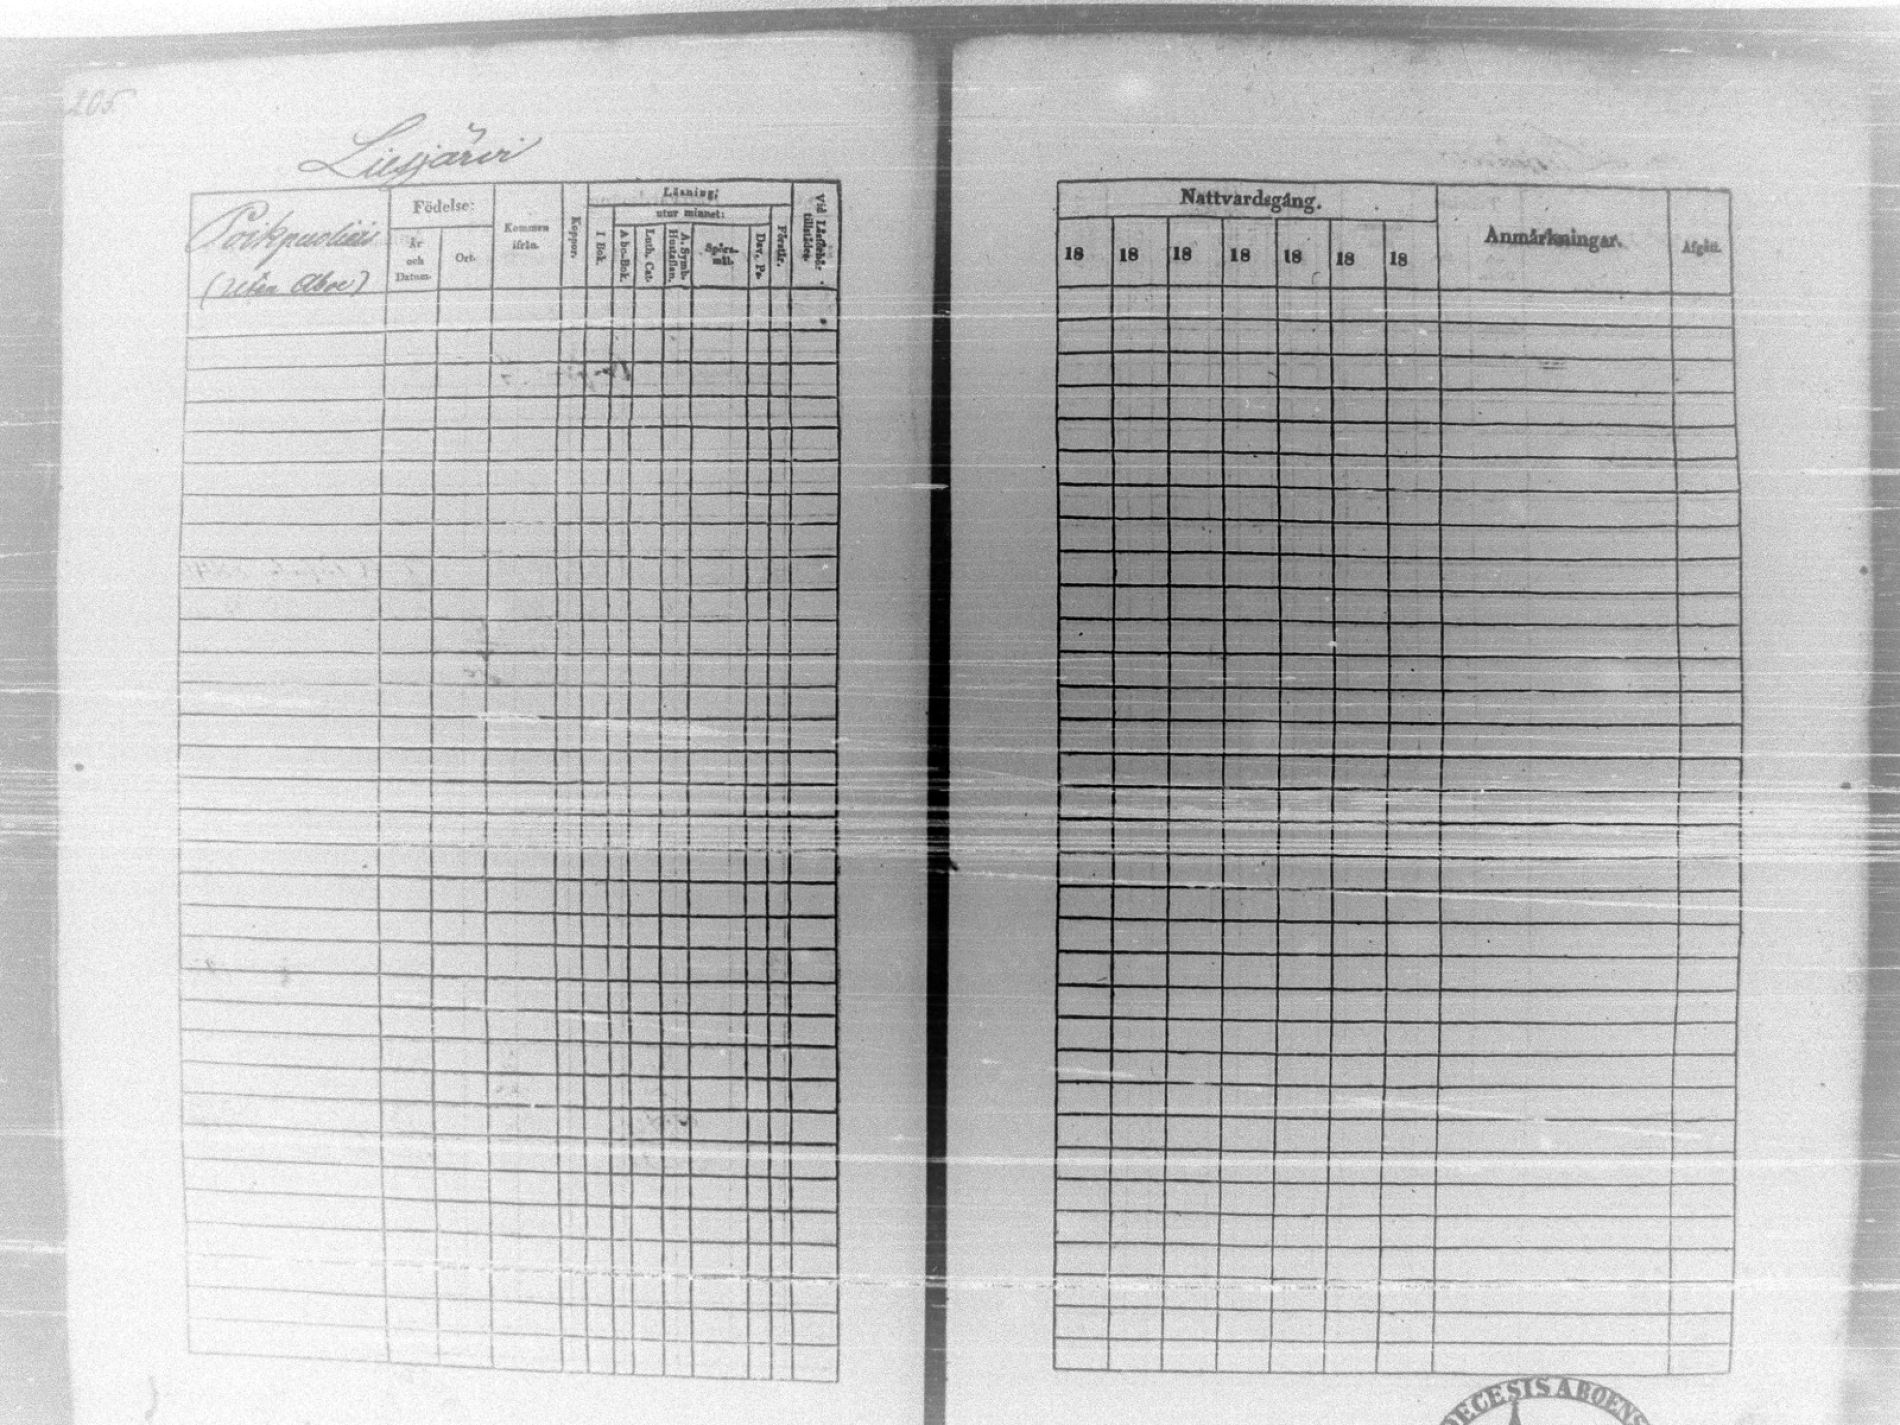 205
Liesjärvi
Poikpuoliäis
(Utan Aboe)
Födelse:
År och Datum.
Ort.
Kommen ifrån.
Koppor.
Läsning;
utur minnet:
I Bok.
A bc-Bok.
Luth. Cat.
A. Symb. Hustaflan.
Spörs-mål.
Dav. Ps.
Förstår.
Vid Läsförhör tillstädes.
Nattvardsgång.
18 18 18 18 18 18 18
Anmärkningar.
Afgått.
DECESIS ABOENS